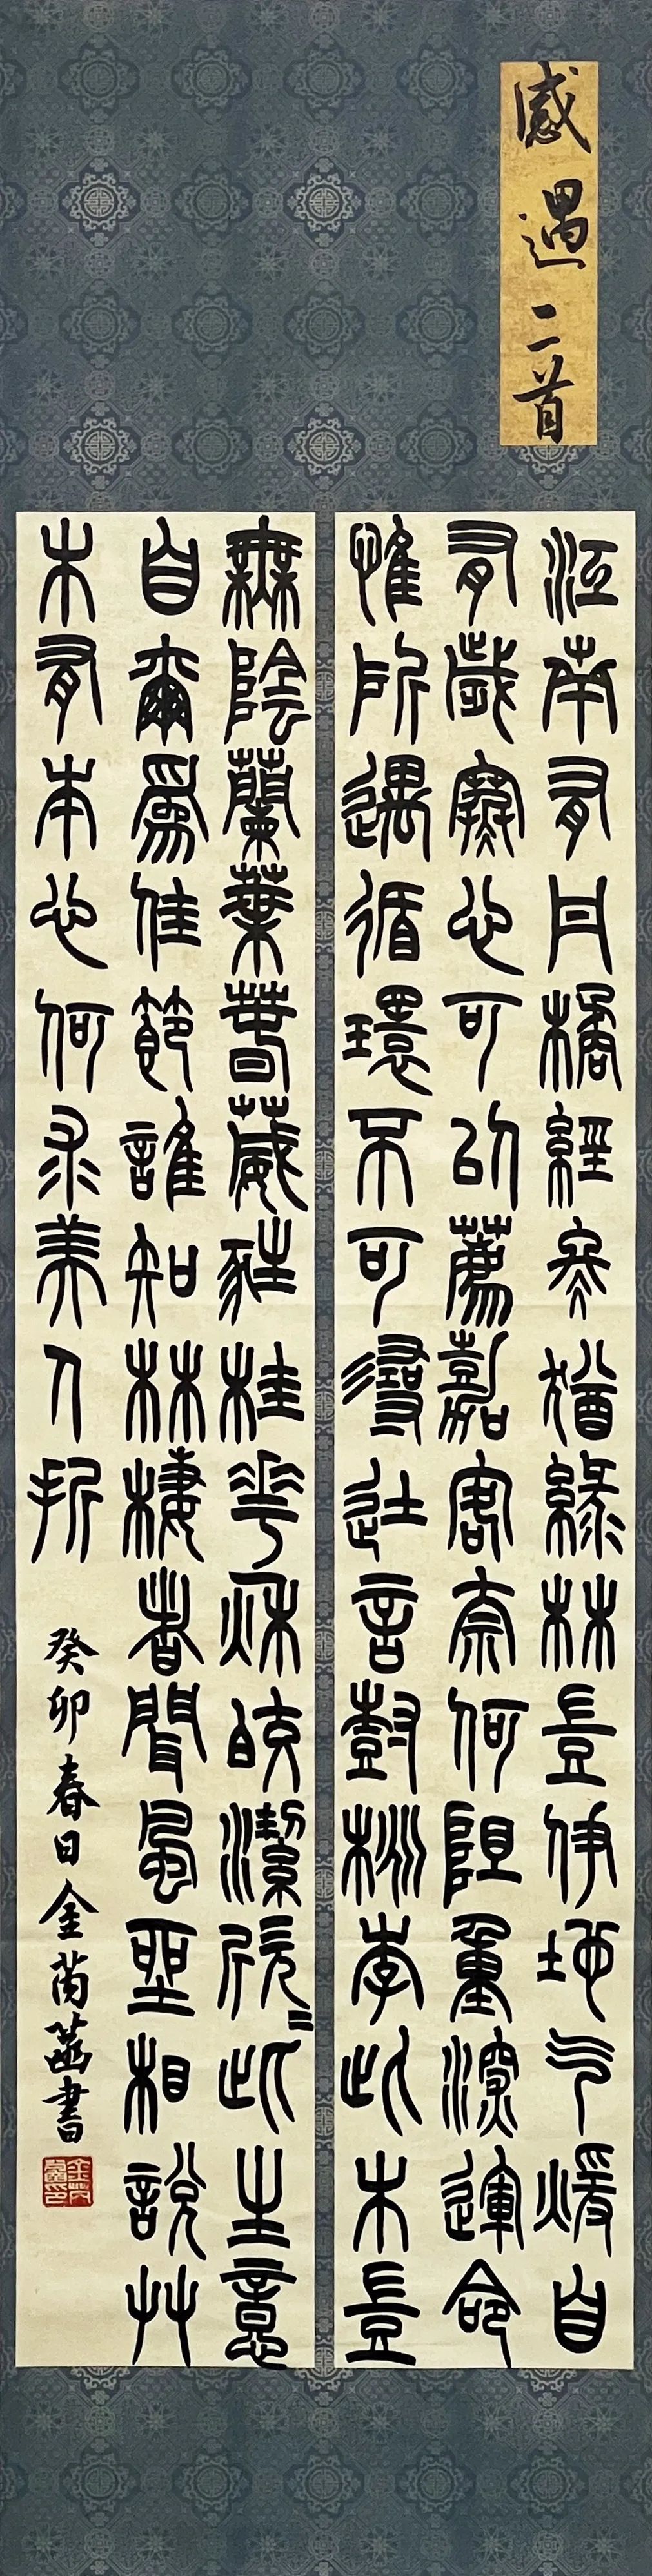 感遇二首
江南有丹橘經冬猶綠林豈伊地气暖自
有歲寒心可以薦嘉客奈何阻重深運命
惟所遇循環不可尋徒言樹桃李此木豈
無陰蘭葉春葳蕤桂華秋皎潔欣〻此生意
自爾為佳節誰知林棲者聞風坐相說艸
木有本心何求美人折
癸卯春日金芮菡書